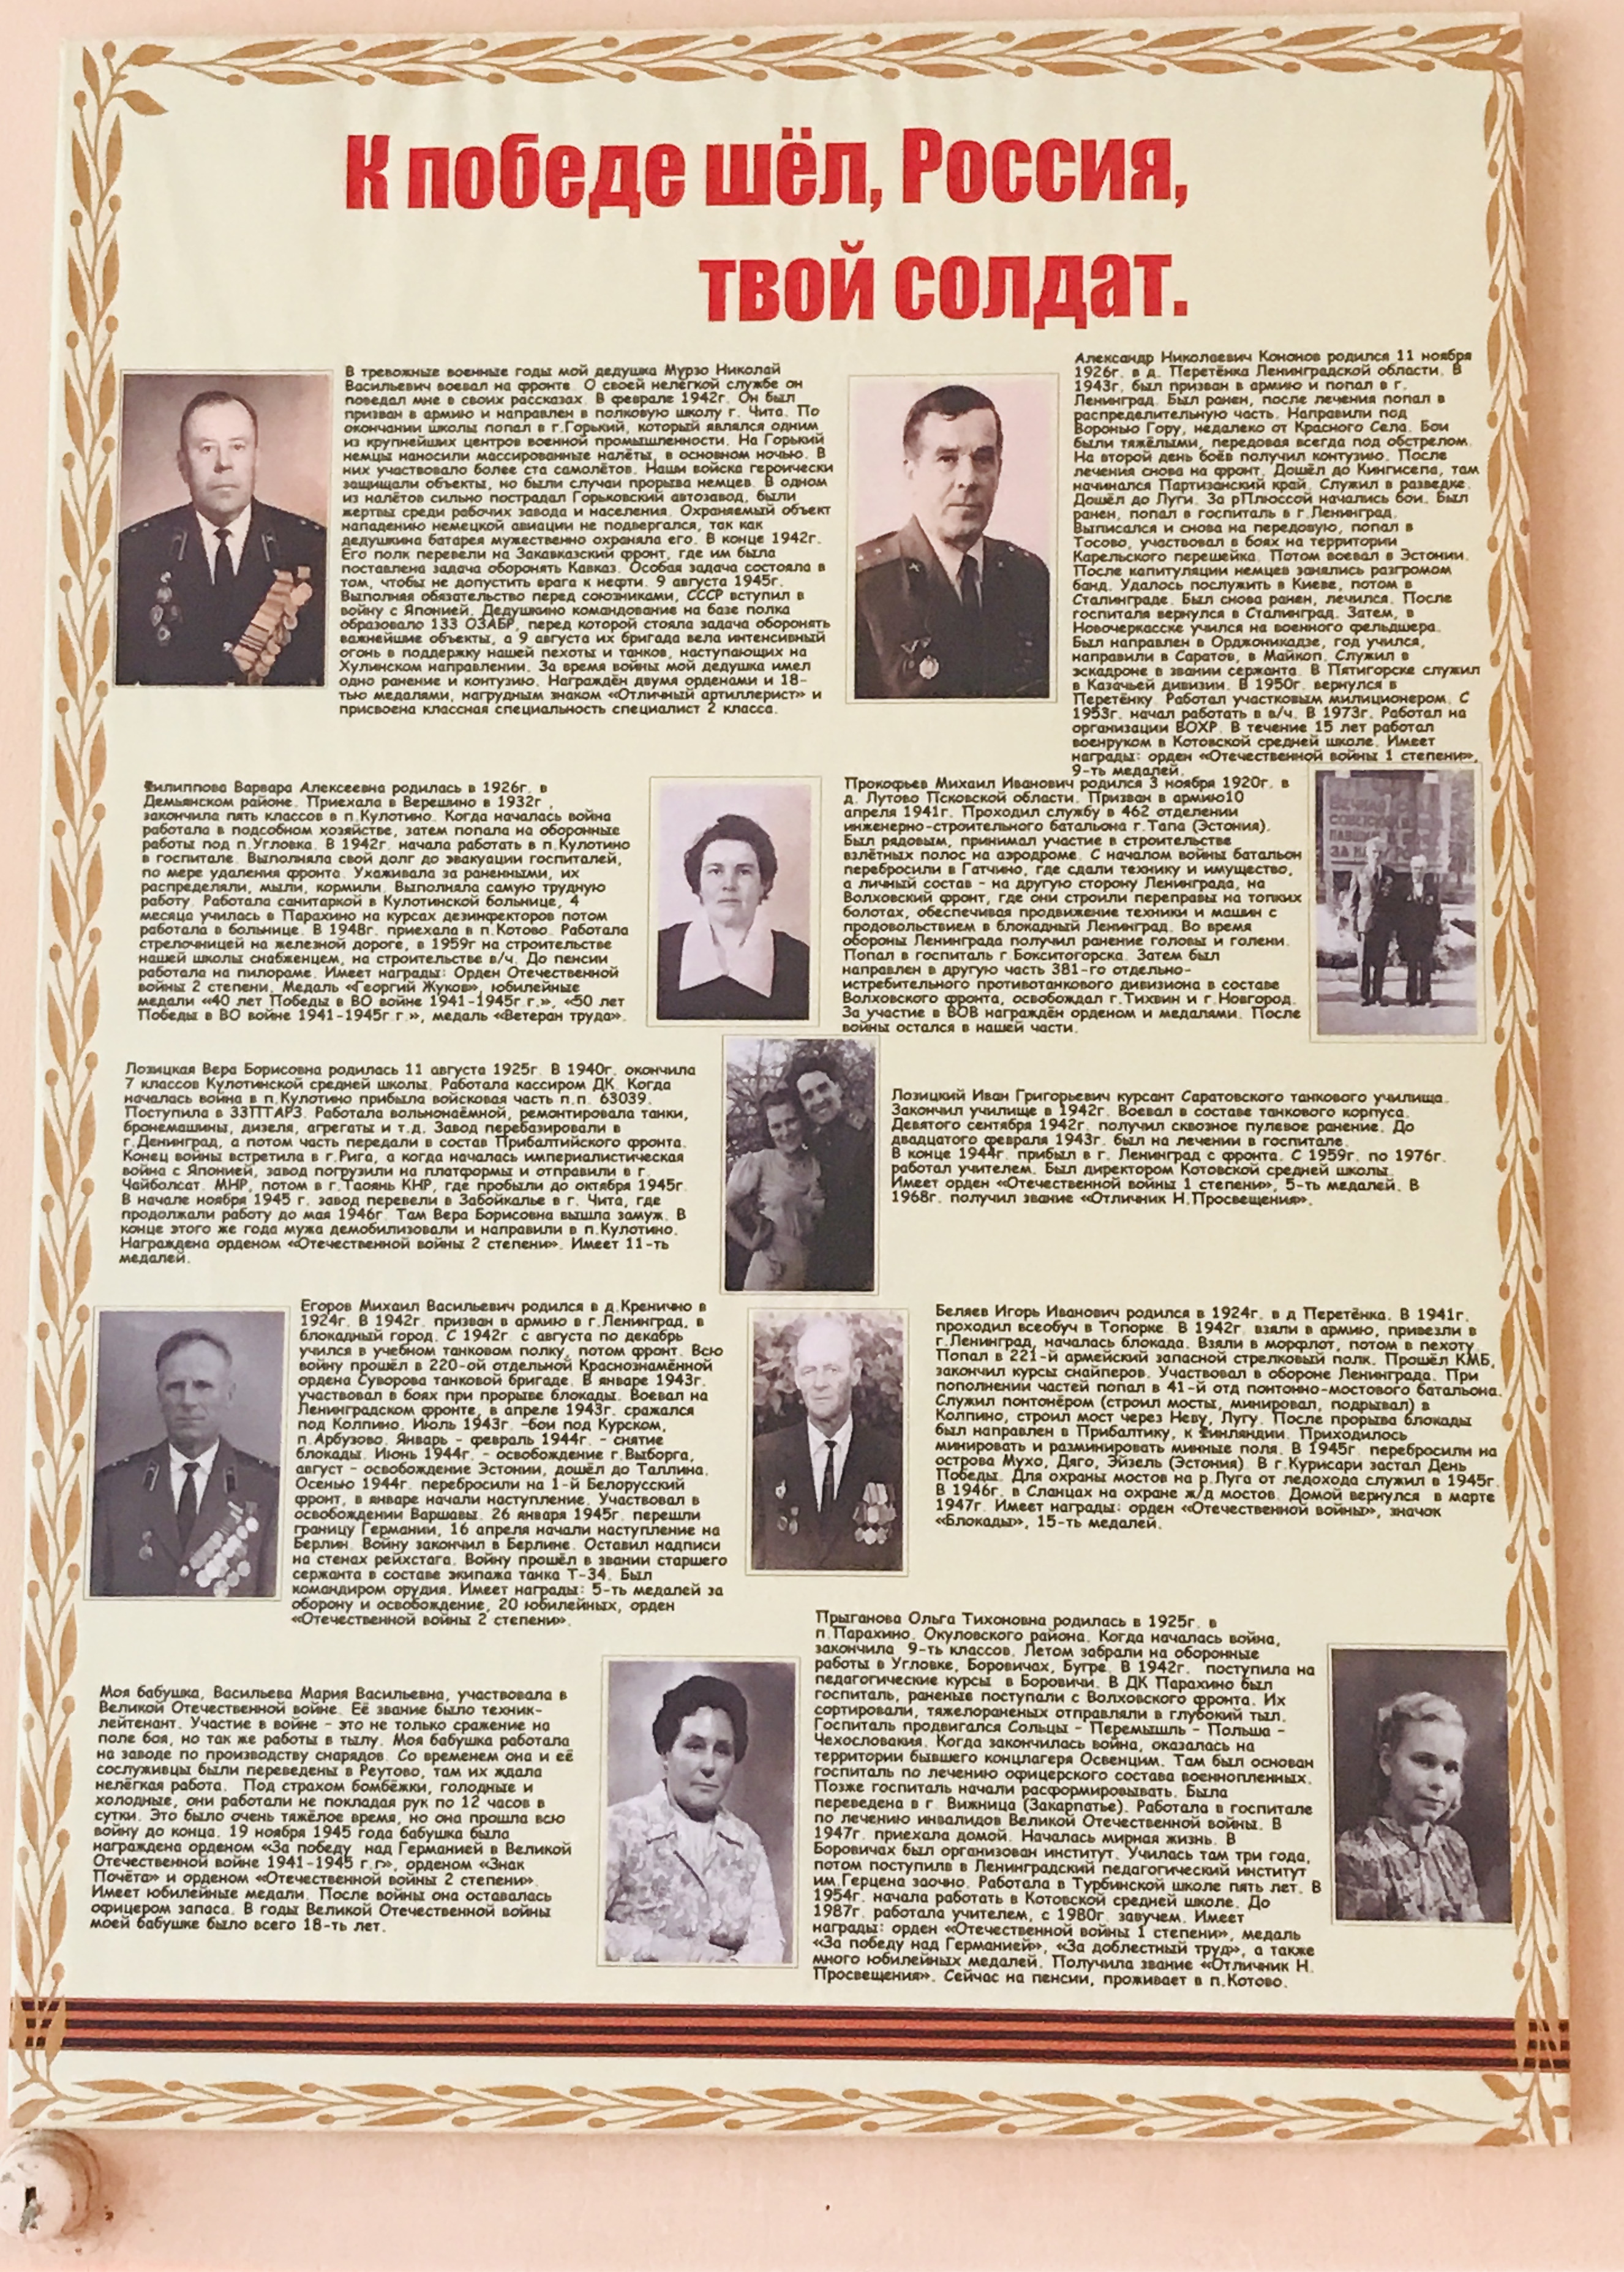 К победе шёл, Россия,
твой солдат.
В тревожные военные годы мой дедушка Мурзо Николай
Васильевич воевал на фронте. О своей нелёгкой службе он
поведал мне в своих рассказах. В феврале 1942г. Он был
призван в армию и направлен в полковую школу г. Чита. По
окончании школы попал в г.Горький, который являлся одним
из крупнейших центров военной промышленности. На Горький
немцы наносили массированные налёты, в основном ночью. В
них участвовало более ста самолётов. Наши войска героически
защищали объекты, но были случаи прорыва немцев. В одном
из налётов сильно пострадал Горьковский автозавод, были
жертвы среди рабочих завода и населения. Охраняемый объект
нападению немецкой авиации не подвергался, так как
дедушкина батарея мужественно охраняла его. В конце 1942г.
Его полк перевели на Закавказский фронт, где им была
поставлена задача оборонять Кавказ. Особая задача состояла в
том, чтобы не допустить врага к нефти. 9 августа 1945г.
Выполняя обязательство перед союзниками, СССР вступил в
войну с Японией. Дедушкино командование на базе полка
образовало 133 ОЗАБР, перед которой стояла задача оборонять
важнейшие объекты, а 9 августа их бригада вела интенсивный
огонь в поддержку нашей пехоты и танков, наступающих на
Хулинском направлении. За время войны мой дедушка имел
одно ранение и контузию. Награждён двумя орденами и 18-
тью медалями, нагрудным знаком «Отличный артиллерист» и
присвоена классная специальность специалист 2 класса.
Александр Николаевич Кононов родился 11 ноября
1926г. в д. Перетёнка Ленинградской области. В
1943г. был призван в армию и попал в г.
Ленинград. Был ранен, после лечения попал в
распределительную часть. Направили под
Воронью Гору, недалеко от Красного Села. Бои
были тяжёлыми, передовая всегда под обстрелом.
На второй день боёв получил контузию. После
лечения снова на фронт. Дошёл до Кингисепа, там
начинался Партизанский край. Служил в разведке.
Дошёл до Луги. За рПлюссой начались бои. Был
ранен, попал в госпиталь в г.Ленинград.
Выписался и снова на передовую, попал в
Тосово, участвовал в боях на территории
Карельского перешейка. Потом воевал в Эстонии.
После капитуляции немцев занялись разгромом
банд. Удалось послужить в Киеве, потом в
Сталинграде. Был снова ранен, лечился. После
госпиталя вернулся в Сталинград. Затем, в
Новочеркасске учился на военного фельдшера.
Был направлен в Орджоникадзе, год учился,
направили в Саратов, в Майкоп. Служил в
эскадроне в звании сержанта. В Пятигорске служил
в Казачьей дивизии. В 1950г. вернулся в
Перетёнку. Работал участковым милиционером. С
1953г. начал работать в в/ч. В 1973г. Работал на
организации ВОХР. В течение 15 лет работал
военруком в Котовской средней школе. Имеет
награды: орден «Отечественной войны 1 степени»,
9-ть медалей.
Филиппова Варвара Алексеевна родилась в 1926г. в
Демьянском районе. Приехала в Верешино в 1932г ,
закончила пять классов в п.Кулотино. Когда началась война
работала в подсобном хозяйстве, затем попала на оборонные
работы под п.Угловка. В 1942г. начала работать в п.Кулотино
в госпитале. Выполняла свой долг до эвакуации госпиталей,
по мере удаления фронта. Ухаживала за раненными, их
распределяли, мыли, кормили. Выполняла самую трудную
работу. Работала санитаркой в Кулотинской больнице, 4
месяца училась в Парахино на курсах дезинфекторов потом
работала в больнице. В 1948г. приехала в п.Котово. Работала
стрелочницей на железной дороге, в 1959г на строительстве
нашей школы снабженцем, на строительстве в/ч. До пенсии
работала на пилораме. Имеет награды: Орден Отечественной
войны 2 степени, Медаль «Георгий Жуков», юбилейные
медали «40 лет Победы в ВО войне 1941-1945г.г.», «50 лет
Победы в ВО войне 1941-1945г.г.», медаль «Ветеран труда».
Прокофьев Михаил Иванович родился 3 ноября 1920г. в
д. Лутово Псковской области. Призван в армию10
апреля 1941г. Проходил службу в 462 отделении
инженерно-строительного батальона г.Тапа (Эстония).
Был рядовым, принимал участие в строительстве
взлётных полос на аэродроме. С началом войны батальон
перебросили в Гатчино, где сдали технику и имущество,
а личный состав - на другую сторону Ленинграда, на
Волховский фронт, где они строили переправы на топких
болотах, обеспечивая продвижение техники и машин с
продовольствием в блокадный Ленинград. Во время
обороны Ленинграда получил ранение головы и голени.
Попал в госпиталь г.Бокситогорска. Затем был
направлен в другую часть 381-го отдельно-
истребительного противотанкового дивизиона в составе
Волховского фронта, освобождал г.Тихвин и г.Новгород.
За участие в ВОВ награждён орденом и медалями. После
войны остался в нашей части.
Лозицкая Вера Борисовна родилась 11 августа 1925г. В 1940г. окончила
7 классов Кулотинской средней школы. Работала кассиром ДК. Когда
началась война в п.Кулотино прибыла войсковая часть п.п. 63039.
Поступила в 33ПТАРЗ. Работала вольнонаёмной, ремонтировала танки,
бронемашины, дизеля, агрегаты и т.д. Завод перебазировали в
г.Ленинград, а потом часть передали в состав Прибалтийского фронта.
Конец войны встретила в г.Рига, а когда началась империалистическая
война с Японией, завод погрузили на платформы и отправили в г.
Чайболсат. МНР, потом в г.Таоянь КНР, где пробыли до октября 1945г.
В начале ноября 1945 г. завод перевели в Забойкалье в г. Чита, где
продолжали работу до мая 1946г. Там Вера Борисовна вышла замуж. В
конце этого же года мужа демобилизовали и направили в п.Кулотино.
Награждена орденом «Отечественной войны 2 степени». Имеет 11-ть
медалей.
Лозицкий Иван Григорьевич курсант Саратовского танкового училища.
Закончил училище в 1942г. Воевал в составе танкового корпуса.
Девятого сентября 1942г. получил сквозное пулевое ранение. До
двадцатого февраля 1943г. был на лечении в госпитале.
В конце 1944г. прибыл в г. Ленинград с фронта. С 1959г. по 1976г.
работал учителем. Был директором Котовской средней школы.
Имеет орден «Отечественной войны 1 степени», 5-ть медалей. В
1968г. получил звание «Отличник Н.Просвещения».
Егоров Михаил Васильевич родился в д.Кренично в
1924г. В 1942г. призван в армию в г.Ленинград, в
блокадный город. С 1942г. с августа по декабрь
учился в учебном танковом полку, потом фронт. Всю
войну прошёл в 220-ой отдельной Краснознамённой
ордена Суворова танковой бригаде. В январе 1943г.
участвовал в боях при прорыве блокады. Воевал на
Ленинградском фронте, в апреле 1943г. сражался
под Колпино. Июль 1943г. -бои под Курском,
п.Арбузово. Январь - февраль 1944г. - снятие
блокады. Июнь 1944г. - освобождение г.Выборга,
август - освобождение Эстонии, дошёл до Таллина.
Осенью 1944г. перебросили на 1-й Белорусский
фронт, в январе начали наступление. Участвовал в
освобождении Варшавы. 26 января 1945г. перешли
границу Германии, 16 апреля начали наступление на
Берлин. Войну закончил в Берлине. Оставил надписи
на стенах рейхстага. Войну прошёл в звании старшего
сержанта в составе экипажа танка Т-34. Был
командиром орудия. Имеет награды: 5-ть медалей за
оборону и освобождение, 20 юбилейных, орден
«Отечественной войны 2 степени».
Беляев Игорь Иванович родился в 1924г. в д Перетёнка. В 1941г.
проходил всеобуч в Топорке. В 1942г. взяли в армию, привезли в
г.Ленинград, началась блокада. Взяли в морфлот, потом в пехоту.
Попал в 221-й армейский запасной стрелковый полк. Прошёл КМБ,
закончил курсы снайперов. Участвовал в обороне Ленинграда. При
пополнении частей попал в 41-й отд понтонно-мостового батальона.
Служил понтонёром (строил мосты, минировал, подрывал) в
Колпино, строил мост через Неву, Лугу. После прорыва блокады
был направлен в Прибалтику, к Финляндии. Приходилось
минировать и разминировать минные поля. В 1945г. перебросили на
острова Мухо, Дяго, Эйзель (Эстония). В г.Курисари застал День
Победы. Для охраны мостов на р.Луга от ледохода служил в 1945г.
В 1946г. в Сланцах на охране ж/д мостов. Домой вернулся в марте
1947г. Имеет награды: орден «Отечественной войны», значок
«Блокады», 15-ть медалей.
Моя бабушка, Васильева Мария Васильевна, участвовала в
Великой Отечественной войне. Её звание было техник-
лейтенант. Участие в войне - это не только сражение на
поле боя, но так же работы в тылу. Моя бабушка работала
на заводе по производству снарядов. Со временем она и её
сослуживцы были переведены в Реутово, там их ждала
нелёгкая работа. Под страхом бомбёжки, голодные и
холодные, они работали не покладая рук по 12 часов в
сутки. Это было очень тяжёлое время, но она прошла всю
войну до конца. 19 ноября 1945 года бабушка была
награждена орденом «За победу над Германией в Великой
Отечественной войне 1941-1945 г.г», орденом «Знак
Почёта» и орденом «Отечественной войны 2 степени».
Имеет юбилейные медали. После войны она оставалась
офицером запаса. В годы Великой Отечественной войны
моей бабушке было всего 18-ть лет.
Прыганова Ольга Тихоновна родилась в 1925г. в
п.Парахино. Окуловского района. Когда началась война,
закончила 9-ть классов. Летом забрали на оборонные
работы в Угловке, Боровичах, Бугре. В 1942г. поступила на
педагогические курсы в Боровичи. В ДК Парахино был
госпиталь, раненые поступали с Волховского фронта. Их
сортировали, тяжелораненых отправляли в глубокий тыл.
Госпиталь продвигался Сольцы - Перемышль - Польша -
Чехословакия. Когда закончилась война, оказалась на
территории бывшего концлагеря Освенцим. Там был основан
госпиталь по лечению офицерского состава военнопленных.
Позже госпиталь начали расформировывать. Была
переведена в г. Вижница (Закарпатье). Работала в госпитале
по лечению инвалидов Великой Отечественной войны. В
1947г. приехала домой. Началась мирная жизнь. В
Боровичах был организован институт. Училась там три года,
потом поступила в Ленинградский педагогический институт
им.Герцена заочно. Работала в Турбинской школе пять лет. В
1954г. начала работать в Котовской средней школе. До
1987г. работала учителем, с 1980г. завучем. Имеет
награды: орден «Отечественной войны 1 степени», медаль
«За победу над Германией», «За доблестный труд», а также
много юбилейных медалей. Получила звание «Отличник Н.
Просвещения». Сейчас на пенсии, проживает в п.Котово.